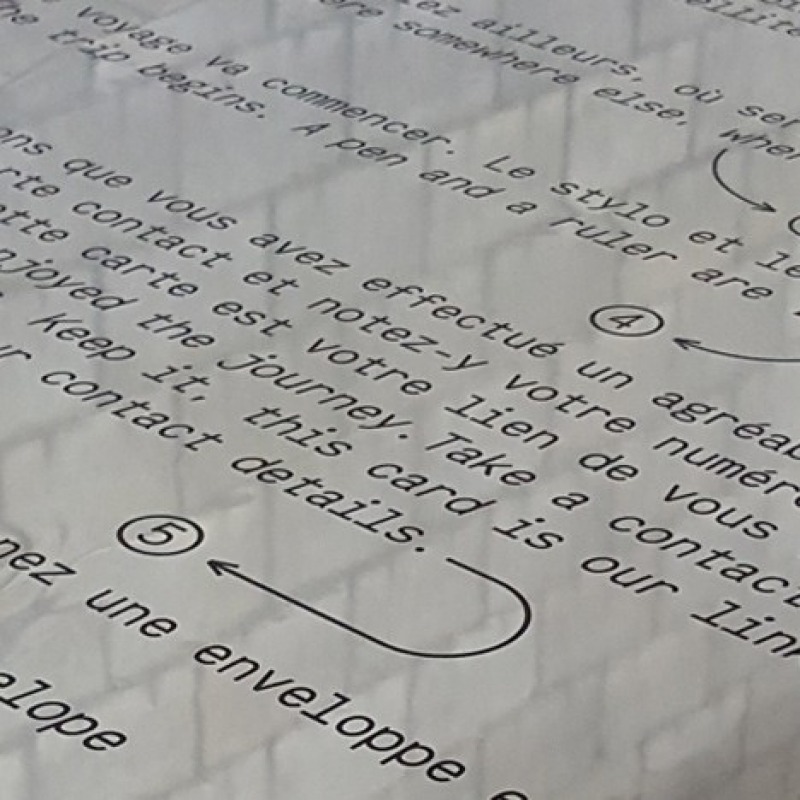 ez ailleurs, où ser
re somewhere else, wher
voyage va commencer. Le stylo et le
trip begins. A pen and a ruler are
④
ons que vous avez effectué un agréab
rte contact et notez-y votre numéro
tte carte est votre lien de vous
njoyed the journey. Take a contact
Keep it, this card is our link
r contact details.
⑤
nez une enveloppe e
elope